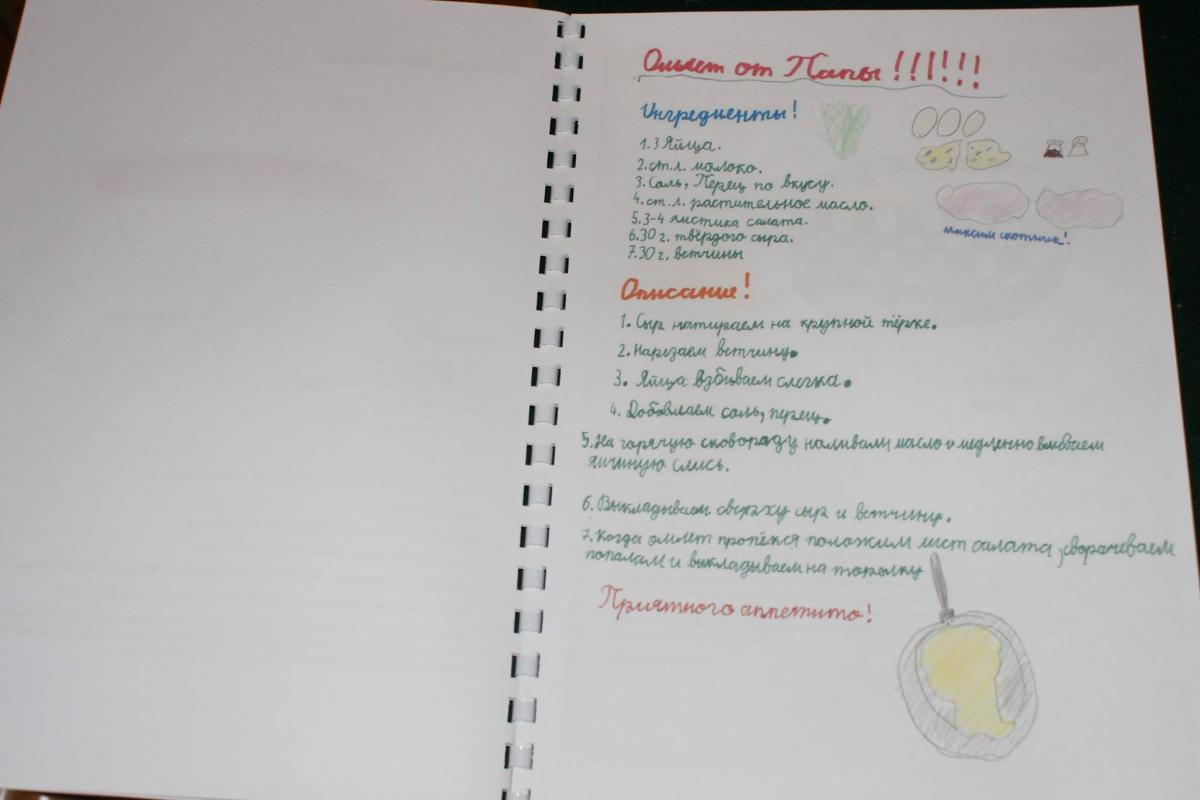 Омлет от Папы !!!!!!
Ингредиенты!
1. 3 Яйца.
2. ст.л. молоко.
3. Соль, Перец по вкусу.
4. ст.л. растительное масло.
5. 3-4 листика салата.
6. 30 г. твёрдого сыра.
7. 30 г. ветчины
максим скотник!
Описание!
1. Сыр натираем на крупной тёрке.
2. Нарезаем ветчину.
3. Яйца взбиваем слегка.
4. Добовляем соль, перец.
5. На горячую сковороду наливали масло и медленно вливаем
яичиную слись.
6. Выкладываем сверху сыр и ветчину.
7. Когда омлет пропёкся положим лист салата, сворачеваем
попалам и выкладываем на торелку
Приятного аппетито!